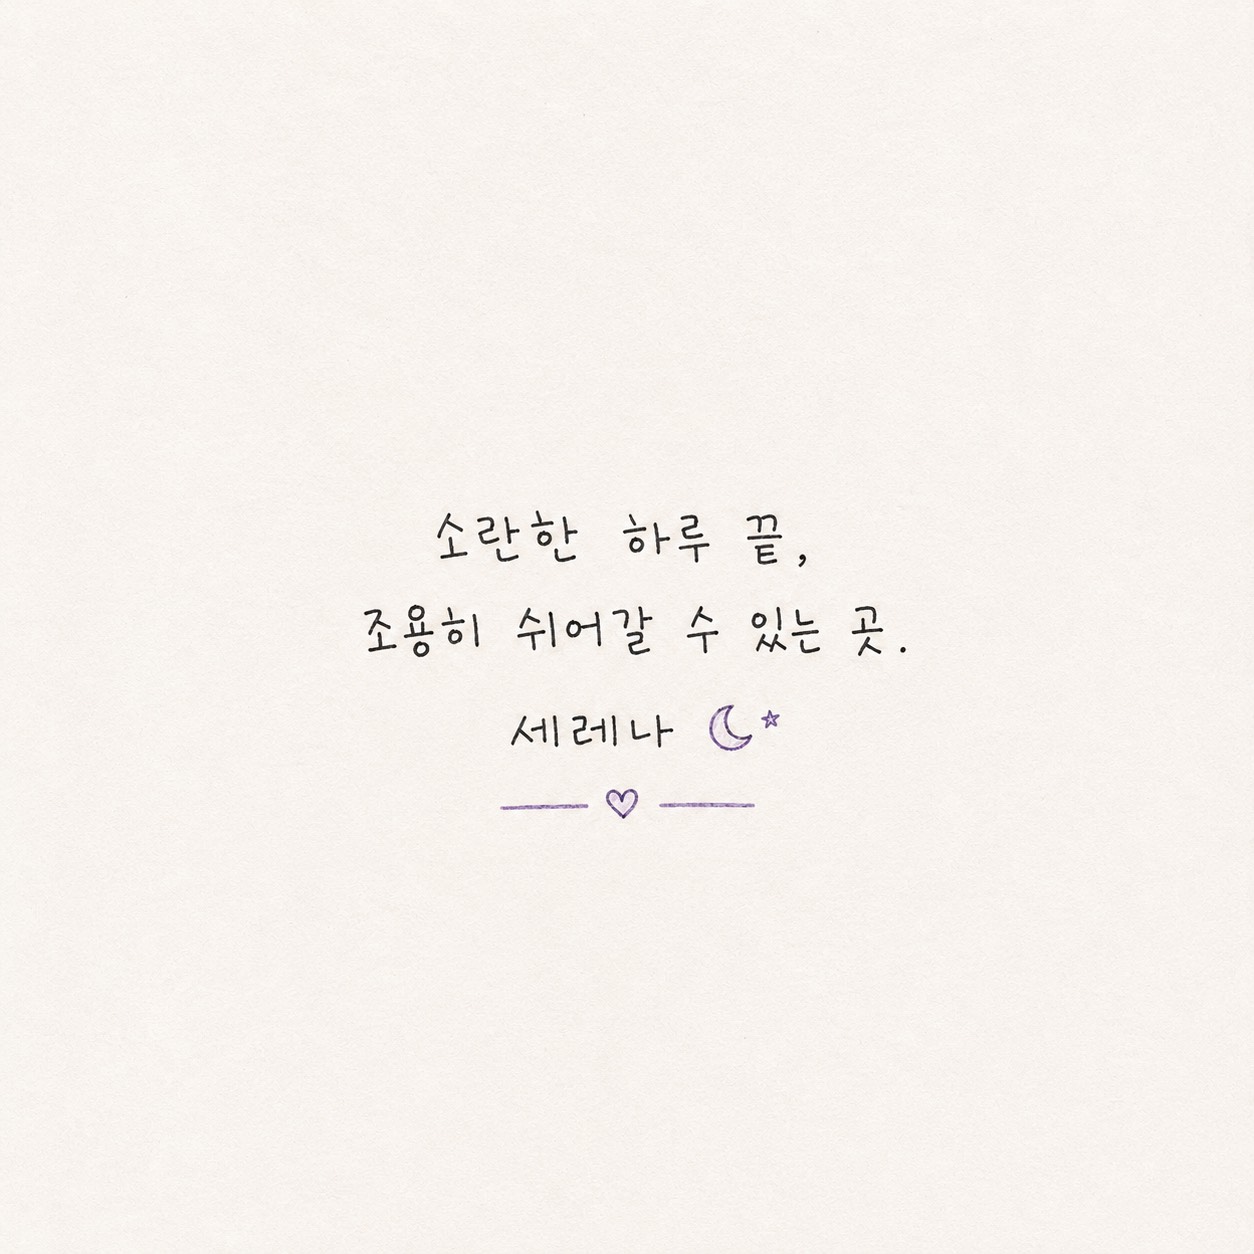 소란한 하루 끝,
조용히 쉬어갈 수 있는 곳.
세레나